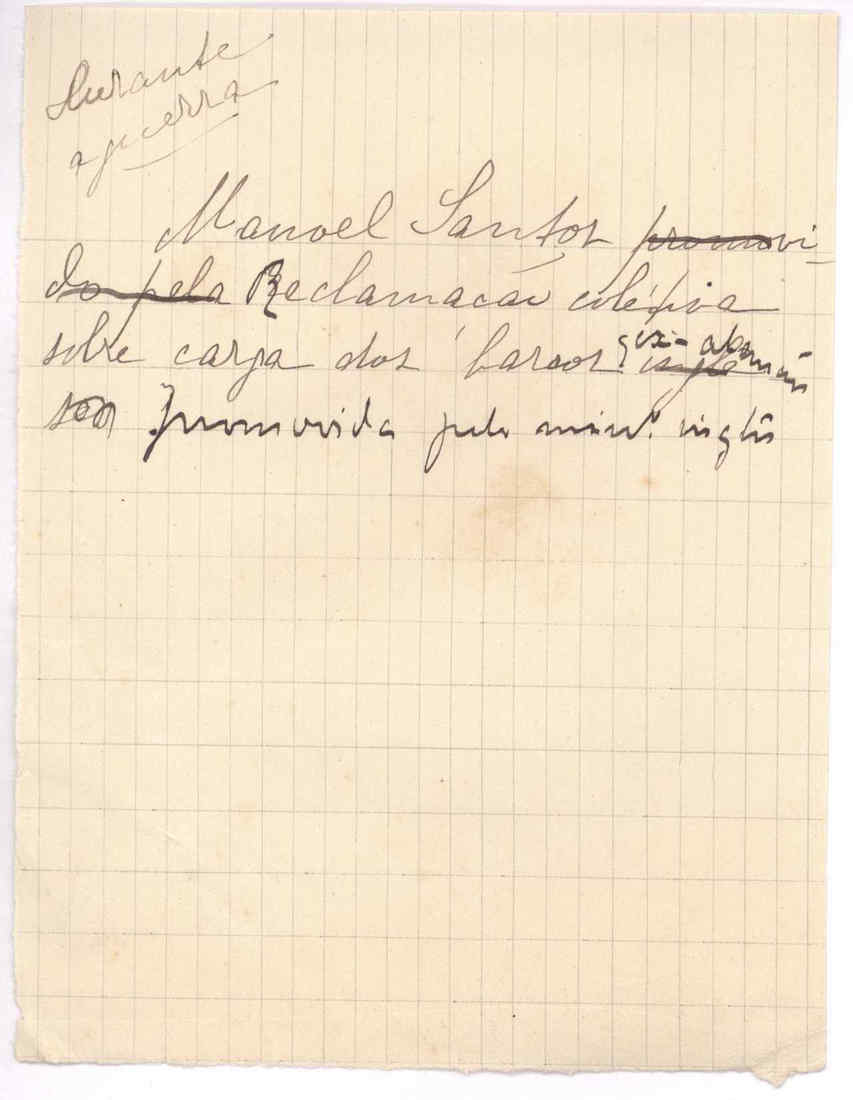 Durante
a guerra
Manoel Santos promovi-
do pela Reclamação colétiva
sobre carga dos barcos ex-alemães
Promovida pelo min.º inglês